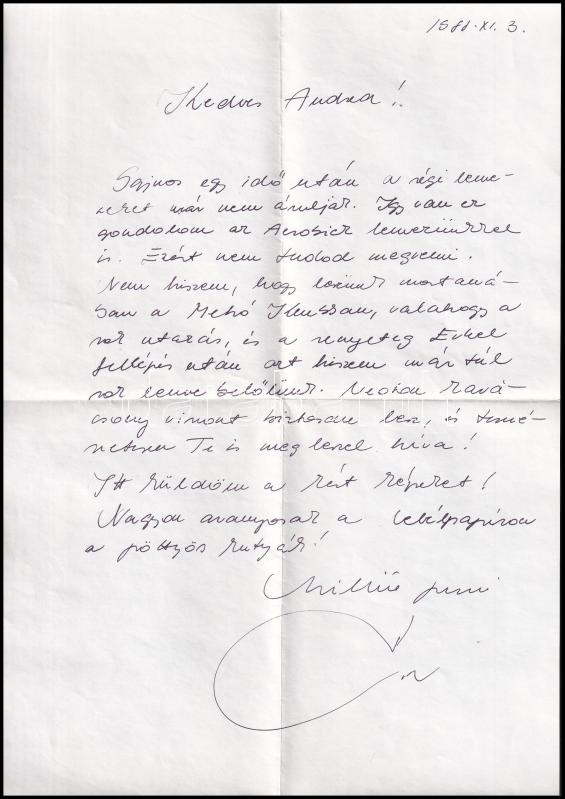 1988. XI. 3.
Kedves Andrea!
Sajnos egy idő után a régi leme-
zeket már nem árulják. Így van ez
gondolom az Aerobick lemezünkkel
is. Ezért nem tudod megvenni.
Nem hiszem, hogy leszünk mostaná-
ban a Metró Klubban, valahogy a
sok utazás, és a rengeteg Erkel
fellépés után azt hiszem már túl
sok lenne belőlünk. Nekem kará-
csony viszont biztosan lesz, és termé-
netesen Te is meg leszel hívva!
Itt küldöm a kért képeket!
Nagyon aranyosak a levélpapíron
a pöttyös kutyák!